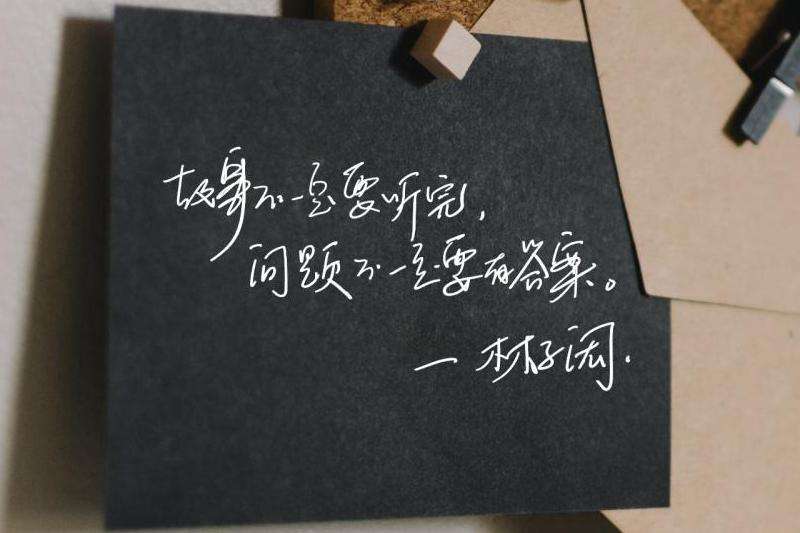 故事不一定要听完,
问题不一定要有答案。
— 林子闳.